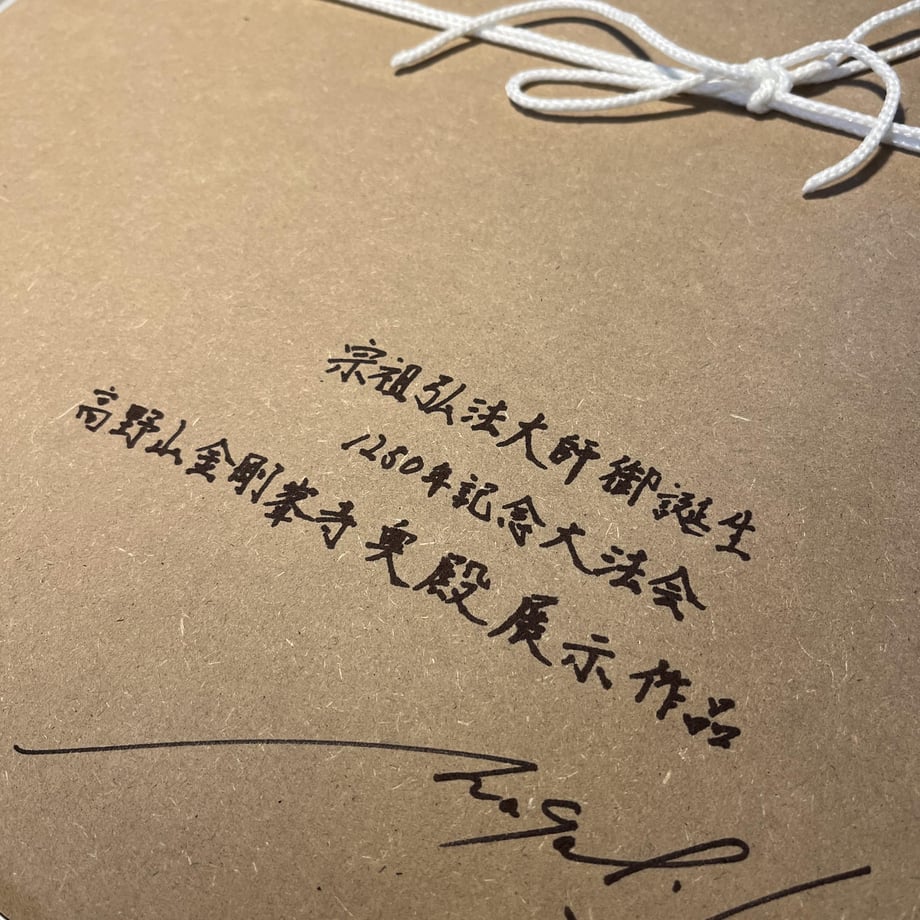 宗祖弘法大師御誕生
1250年記念大法会
高野山金剛峯寺奥殿展示作品